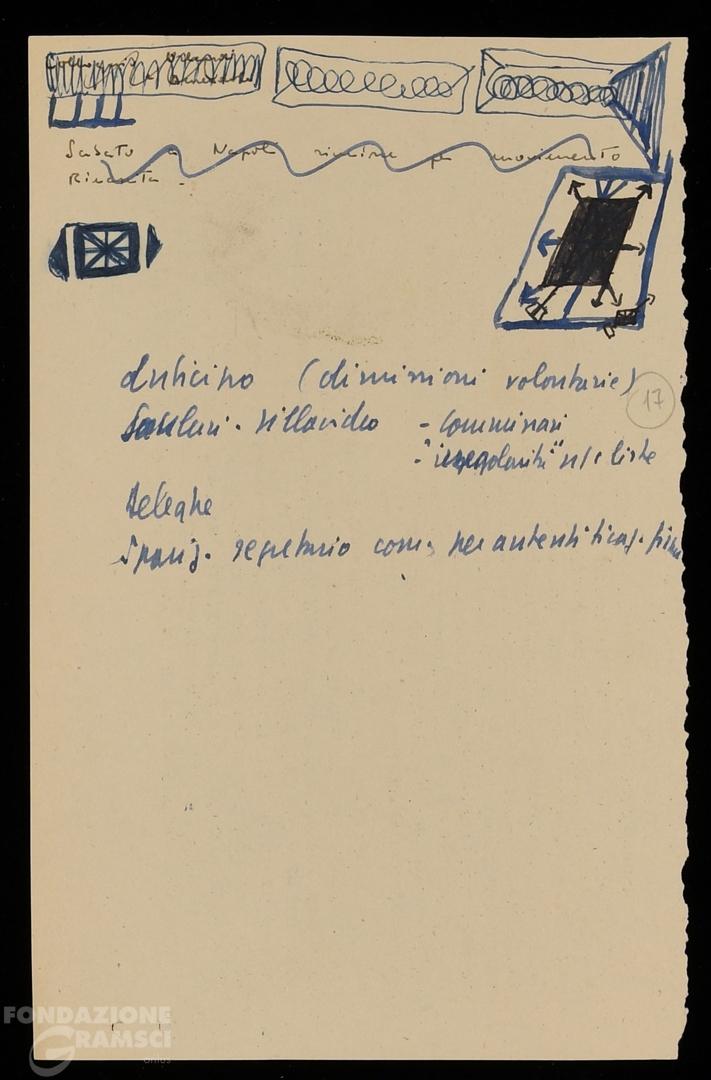 Sabato a Napoli riunione per movimento
Rinascita -
Anticipo (dimissioni volontarie)
17
Sanluri - Villacidro - Commissari
- "irregolarità" s/c liste
Deleghe
Spaz. segretario com. per autenticaz. firm
FONDAZIONE
GRAMSCI
onlus